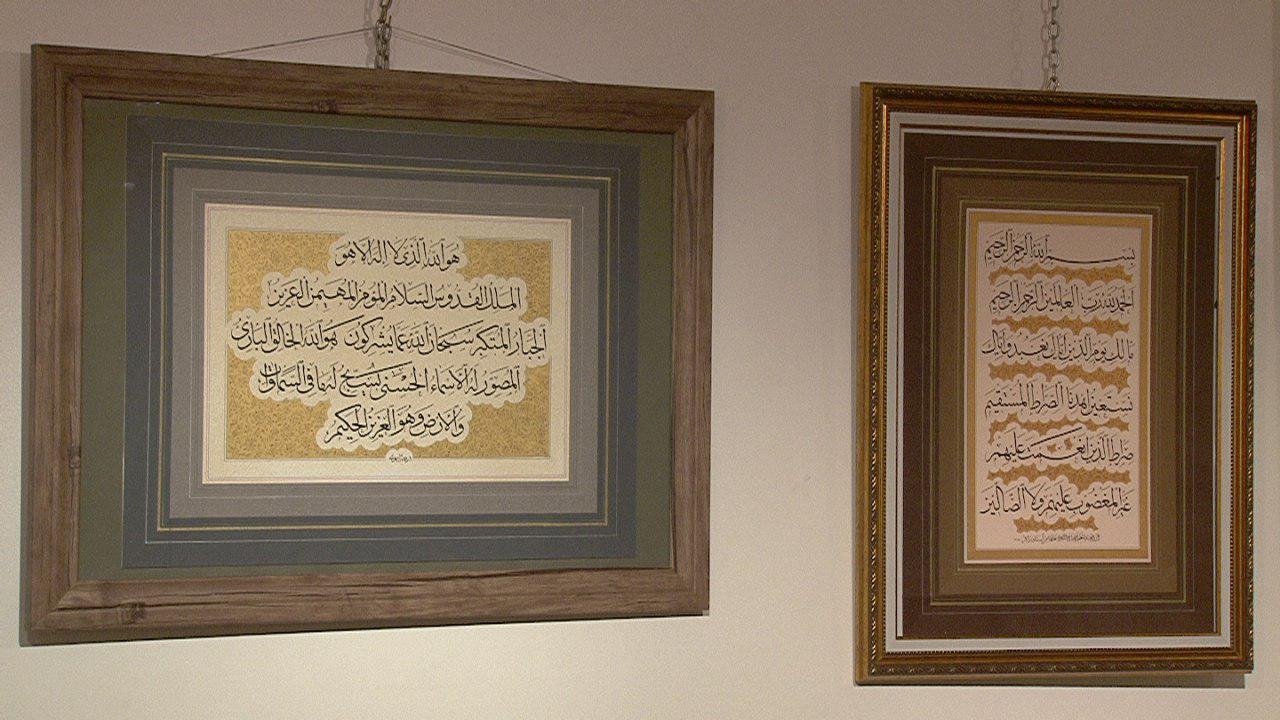 هو الله الذی لا اله الا هو
الملک القدوس السلام المؤمن المهیمن العزیز
الجبار المتکبر سبحان الله عما یشرکون هو الله الخالق الباری
المصور له الاسماء الحسنی یسبح له ما فی السماوات
والارض وهو العزیز الحکیم
بسم الله الرحمن الرحیم
الحمد لله رب العالمین الرحمن الرحیم
مالک یوم الدین ایاک نعبد وایاک
نستعین اهدنا الصراط المستقیم
صراط الذین انعمت علیهم
غیر المغضوب علیهم ولا الضالین